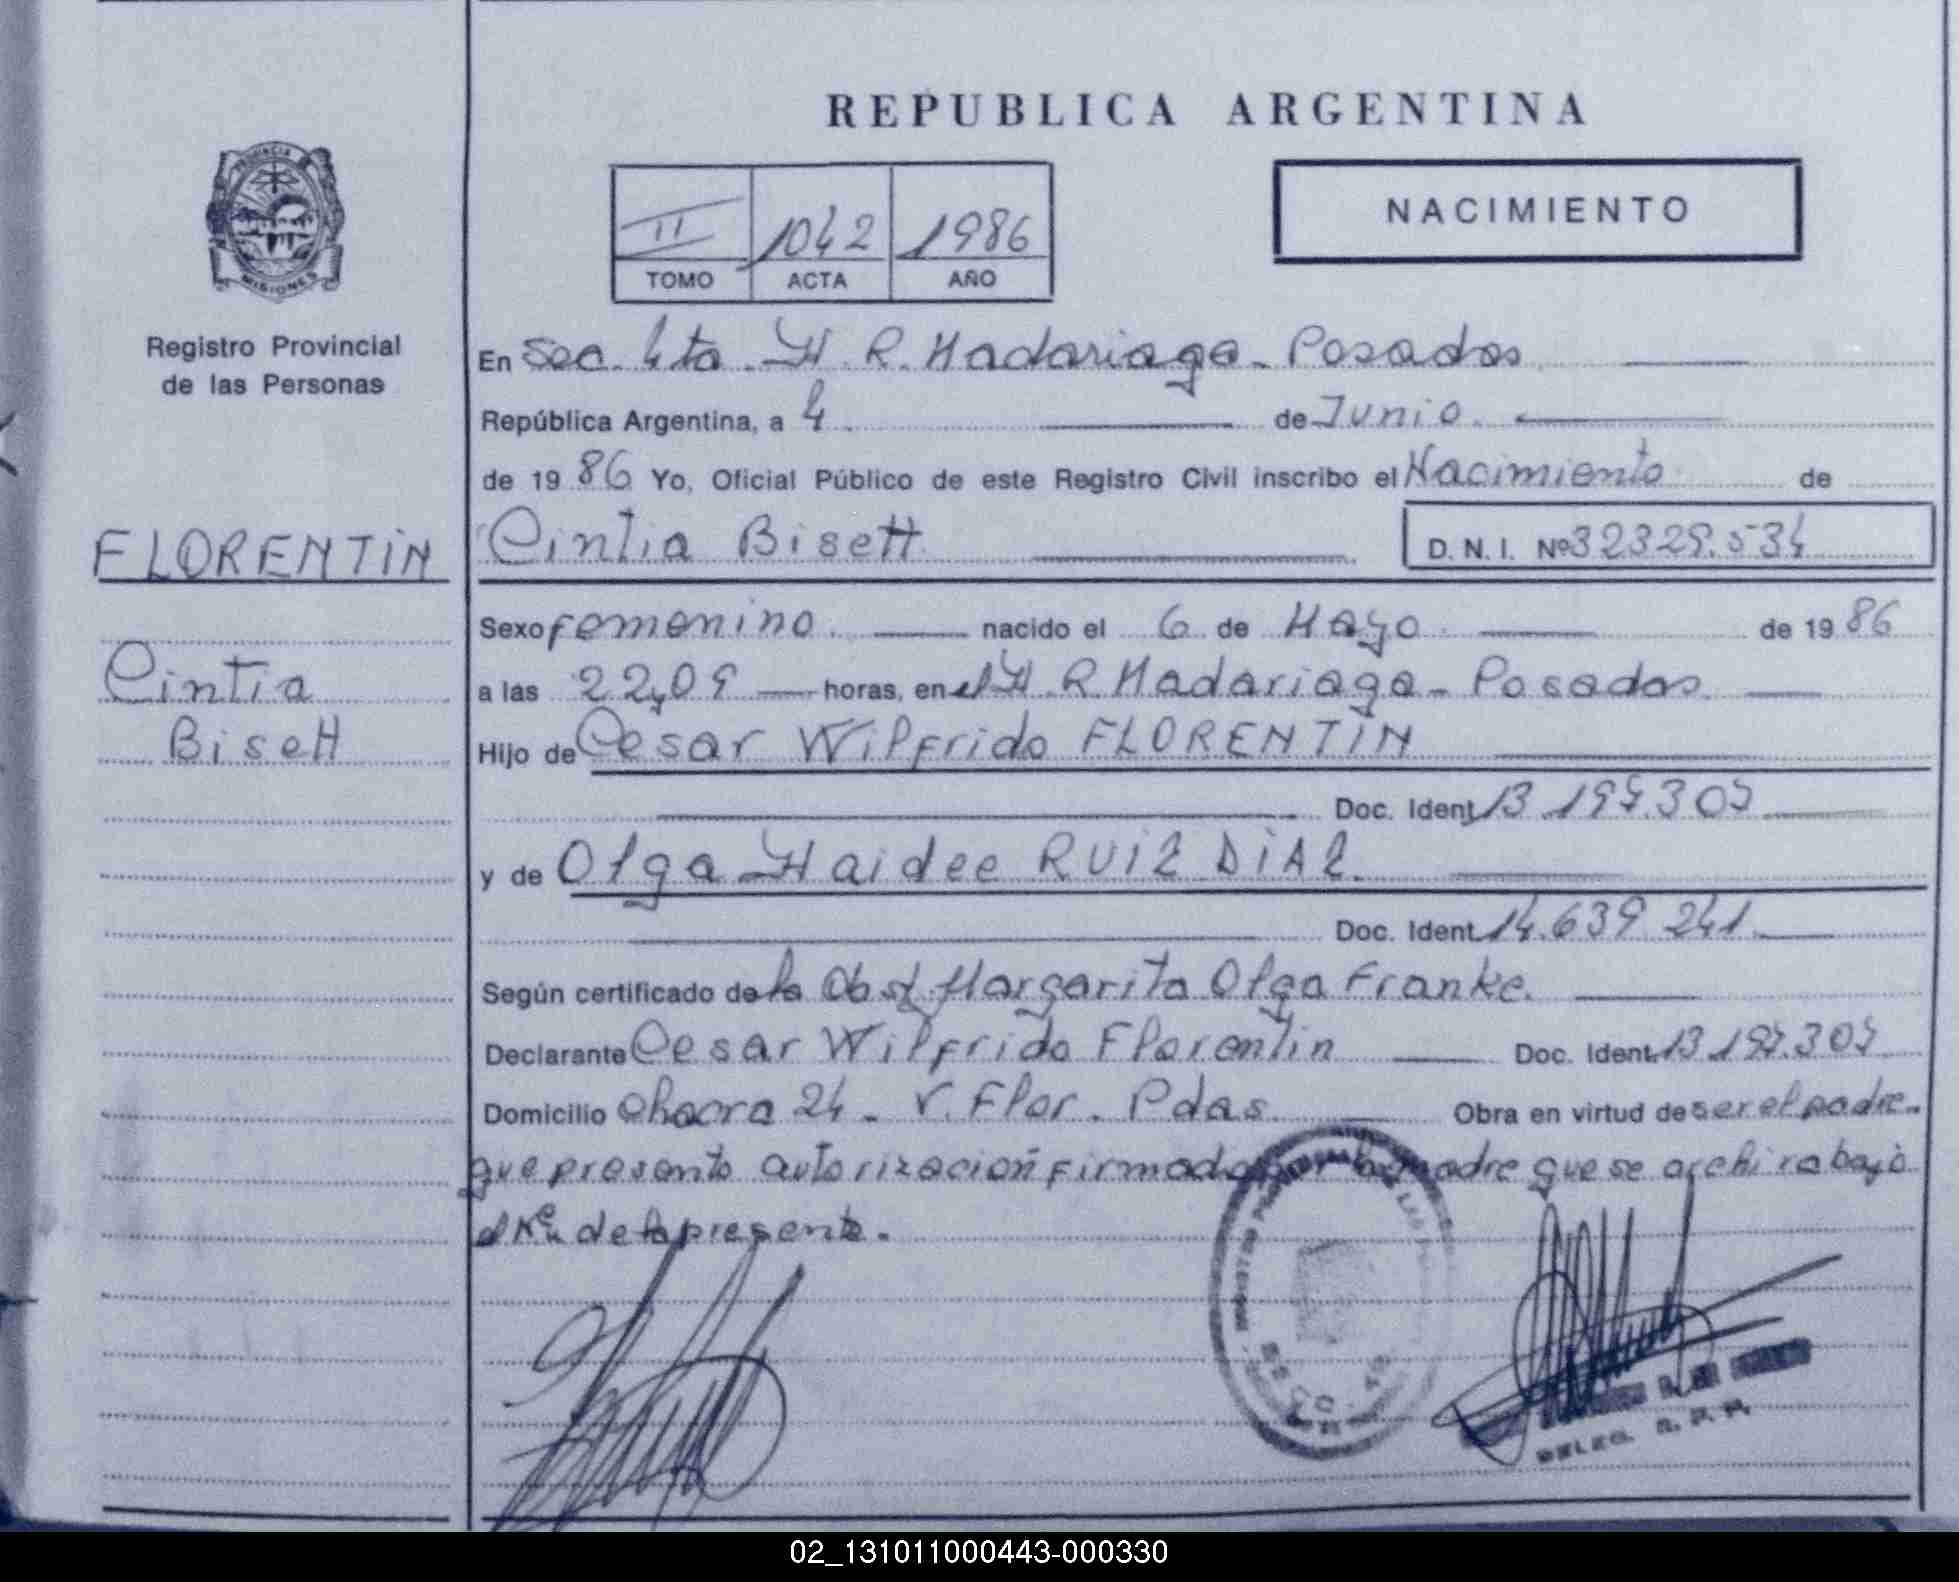 REPUBLICA ARGENTINA
PROVINCIA
MISIONES
Registro Provincial
de las Personas
II 1042 1986
TOMO ACTA AÑO
NACIMIENTO
En Sec. 4ta. H. R. Madariaga - Posadas
República Argentina, a 4 de Junio.
de 19 86 Yo, Oficial Público de este Registro Civil inscribo el Nacimiento de
FLORENTIN
Cintia Bisett
Cintia Bisett D. N. I. Nº 32329.534
Sexo femenino. nacido el 6 de Mayo de 19 86
a las 22,09 horas, en el H. R. Madariaga - Posadas.
Hijo de Cesar Wilfrido FLORENTIN
Doc. Ident. 13.197.307
y de Olga Haidee RUIZ DIAZ.
Doc. Ident. 14.639.241
Según certificado de la Obst. Margarita Olga Franke.
Declarante Cesar Wilfrido Florentin Doc. Ident. 13.197.307
Domicilio Chacra 24 - V. Flor. Pdas. Obra en virtud de ser el padre.
que presento autorización firmada por la madre que se archiva bajo
el Nº de la presente.
DELEG. R. P. P.
02_131011000443-000330